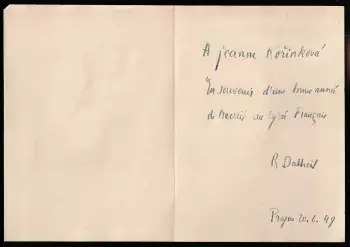 A Jeanne Kořínková
En souvenir d'une bonne année
de travail au Lycée Français
R
Prague 20.6.49